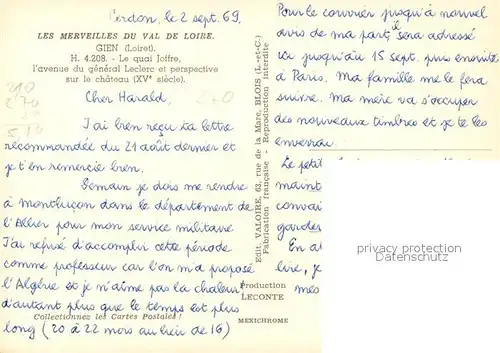 Cerdon, le 2 sept. 69,
LES MERVEILLES DU VAL DE LOIRE.
GIEN (Loiret).
H. 4.208. - Le quai Joffre,
l'avenue du général Leclerc et perspective
sur le château (XVe siècle).
Cher Harald,
J'ai bien reçu ta lettre
recommandée du 21 août dernier et
je t'en remercie bien.
Demain je dois me rendre
à Montluçon dans le département de
l'Allier pour mon service militaire
J'ai refusé d'accomplir cette période
comme professeur car l'on m'a proposé
l'Algérie et je n'aime pas la chaleur
d'autant plus que le temps est plus
long (20 à 22 mois au lieu de 16)
Collectionnez les Cartes Postales !
Edit. VALOIRE, 63, rue de la Mare, BLOIS (L.-et-C.)
Fabrication française - Reproduction interdite
Production
LECONTE
MEXICHROME
Pour le courrier jusqu'à nouvel
avis de ma part, il sera adressé
ici jusqu'au 15 sept. puis ensuite
à Paris. Ma famille me le fera
suivre. Ma mère va s'occuper
des nouveaux timbres et je te les
enverrai.
Le petit
maint
conv
garder
En at
lire, je
mes
privacy protection
Datenschutz